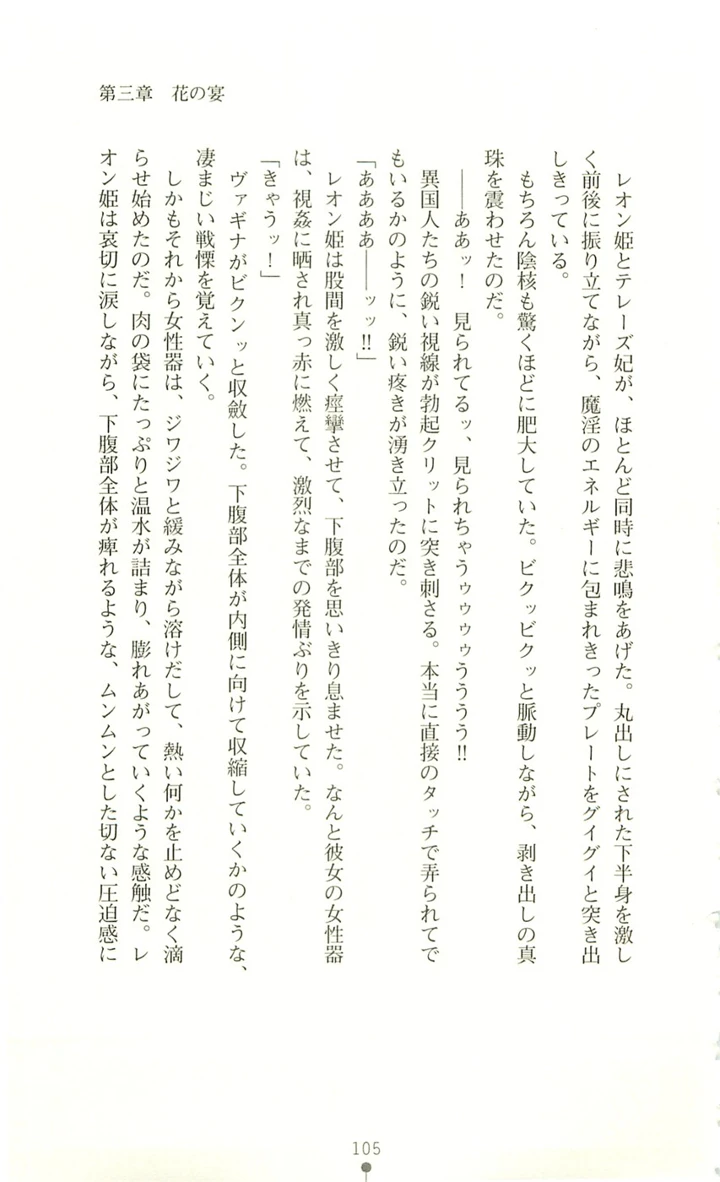 第三章　花の宴
レオン姫とテレーズ妃が、ほとんど同時に悲鳴をあげた。丸出しにされた下半身を激し
く前後に振り立てながら、魔淫のエネルギーに包まれきったプレートをグイグイと突き出
しきっている。
もちろん陰核も驚くほどに肥大していた。ビクッビクッと脈動しながら、剥き出しの真
珠を震わせたのだ。
――ああッ！　見られてるッ、見られちゃうゥゥゥゥうううう!!
異国人たちの鋭い視線が勃起クリットに突き刺さる。本当に直接のタッチで弄られてで
もいるかのように、鋭い疼きが湧き立ったのだ。
「ああああ――ッッ!!」
レオン姫は股間を激しく痙攣させて、下腹部を思いきり息ませた。なんと彼女の女性器
は、視姦に晒され真っ赤に燃えて、激烈なまでの発情ぶりを示していた。
「きゃうッ！」
ヴァギナがビクンッと収斂した。下腹部全体が内側に向けて収縮していくかのような、
凄まじい戦慄を覚えていく。
しかもそれから女性器は、ジワジワと緩みながら溶けだして、熱い何かを止めどなく滴
らせ始めたのだ。肉の袋にたっぷりと温水が詰まり、膨れあがっていくような感触だ。レ
オン姫は哀切に涙しながら、下腹部全体が痺れるような、ムンムンとした切ない圧迫感に
105